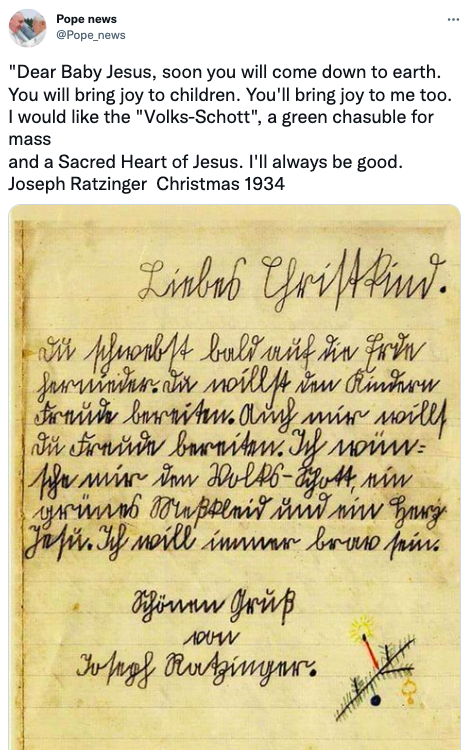 Pope news
@Pope_news
"Dear Baby Jesus, soon you will come down to earth.
You will bring joy to children. You'll bring joy to me too.
I would like the "Volks-Schott", a green chasuble for
mass
and a Sacred Heart of Jesus. I'll always be good.
Joseph Ratzinger  Christmas 1934
Liebes Christkind.
Du schwebst bald auf die Erde
hernieder. Du willst den Kindern
Freude bereiten. Auch mir willst
Du Freude bereiten. Ich wün=
sche mir den Volks-Schott, ein
grünes Meßkleid und ein Herz
Jesu. Ich will immer brav sein.
Schönen Gruß
von
Joseph Ratzinger.